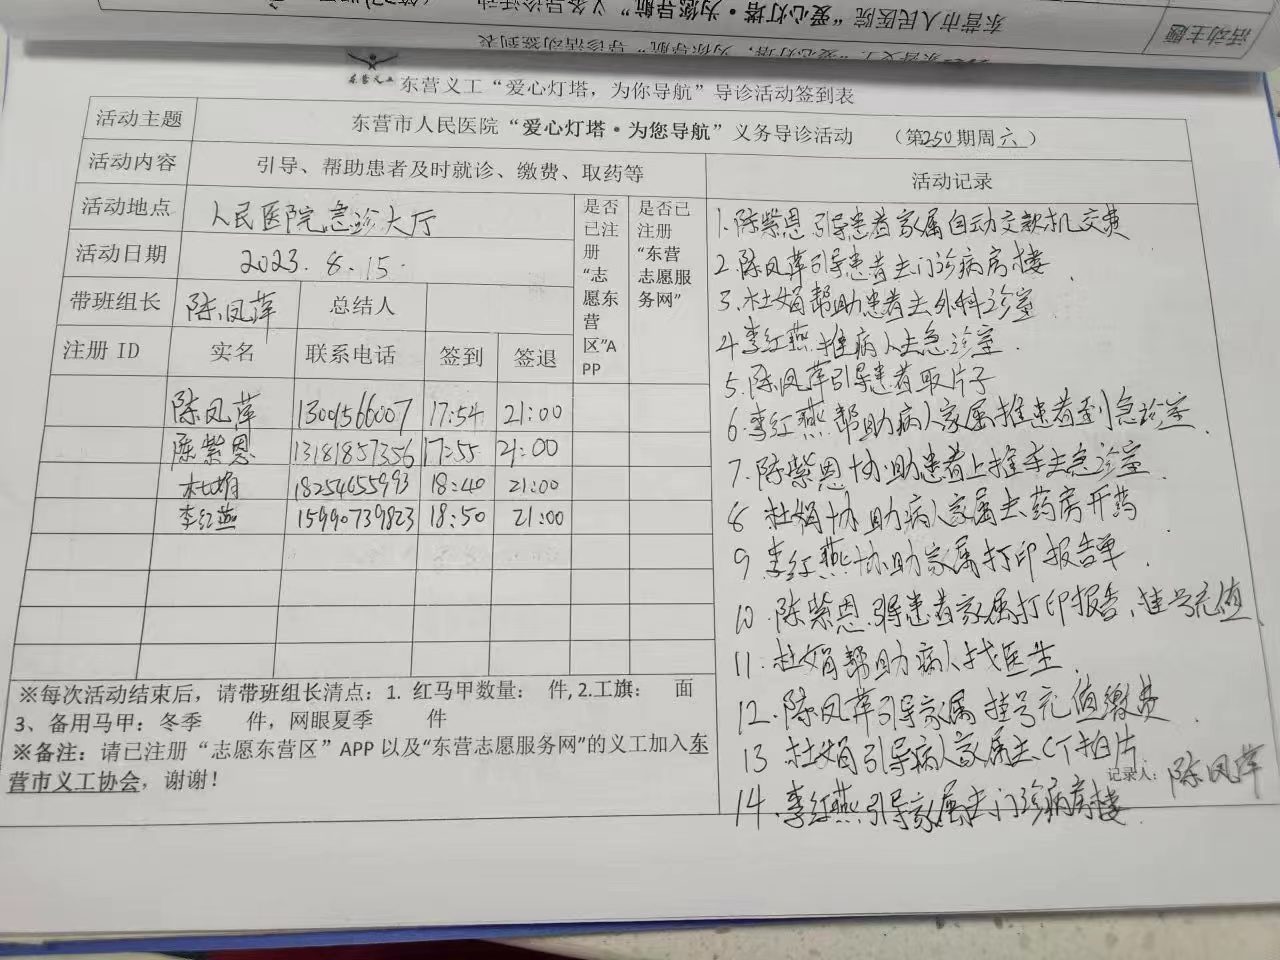 活动主题
东营市人民医院“爱心灯塔·为您导航”义务导诊活动
东营义工“爱心灯塔，为你导航”导诊活动签到表
东营义工
东营义工“爱心灯塔，为你导航”导诊活动签到表
活动主题 东营市人民医院“爱心灯塔·为您导航”义务导诊活动 （第250期周六）
活动内容 引导、帮助患者及时就诊、缴费、取药等
活动地点 人民医院急诊大厅
活动日期 2023.8.15.
带班组长 陈凤萍 总结人
是否已注册“志愿东营区”APP
是否已注册“东营志愿服务网”
注册 ID 实名 联系电话 签到 签退
陈凤萍 13095566007 17:54 21:00
陈紫恩 13181857356 17:55 21:00
杜娟 18254655993 18:40 21:00
李红燕 15990739823 18:50 21:00
※每次活动结束后，请带班组长清点：1. 红马甲数量： 件, 2.工旗： 面
3、备用马甲：冬季 件，网眼夏季 件
※备注：请已注册“志愿东营区”APP 以及“东营志愿服务网”的义工加入东
营市义工协会，谢谢！
活动记录
1.陈紫恩引导患者家属自动交款机交费
2.陈凤萍引导患者去门诊病房楼
3.杜娟帮助患者去外科诊室
4.李红燕推病人去急诊室.
5.陈凤萍引导患者取片子
6.李红燕帮助病人家属推患者到急诊室.
7.陈紫恩协助患者上推车去急诊室
8 杜娟协助病人家属去药房开药
9.李红燕协助家属打印报告单.
10.陈紫恩引导患者家属打印报告、挂号充值
11.杜娟帮助病人找医生.
12.陈凤萍引导家属挂号充值缴费.
13 杜娟引导病人家属去CT拍片
14.李红燕引导家属去门诊病房楼
记录人：陈凤萍